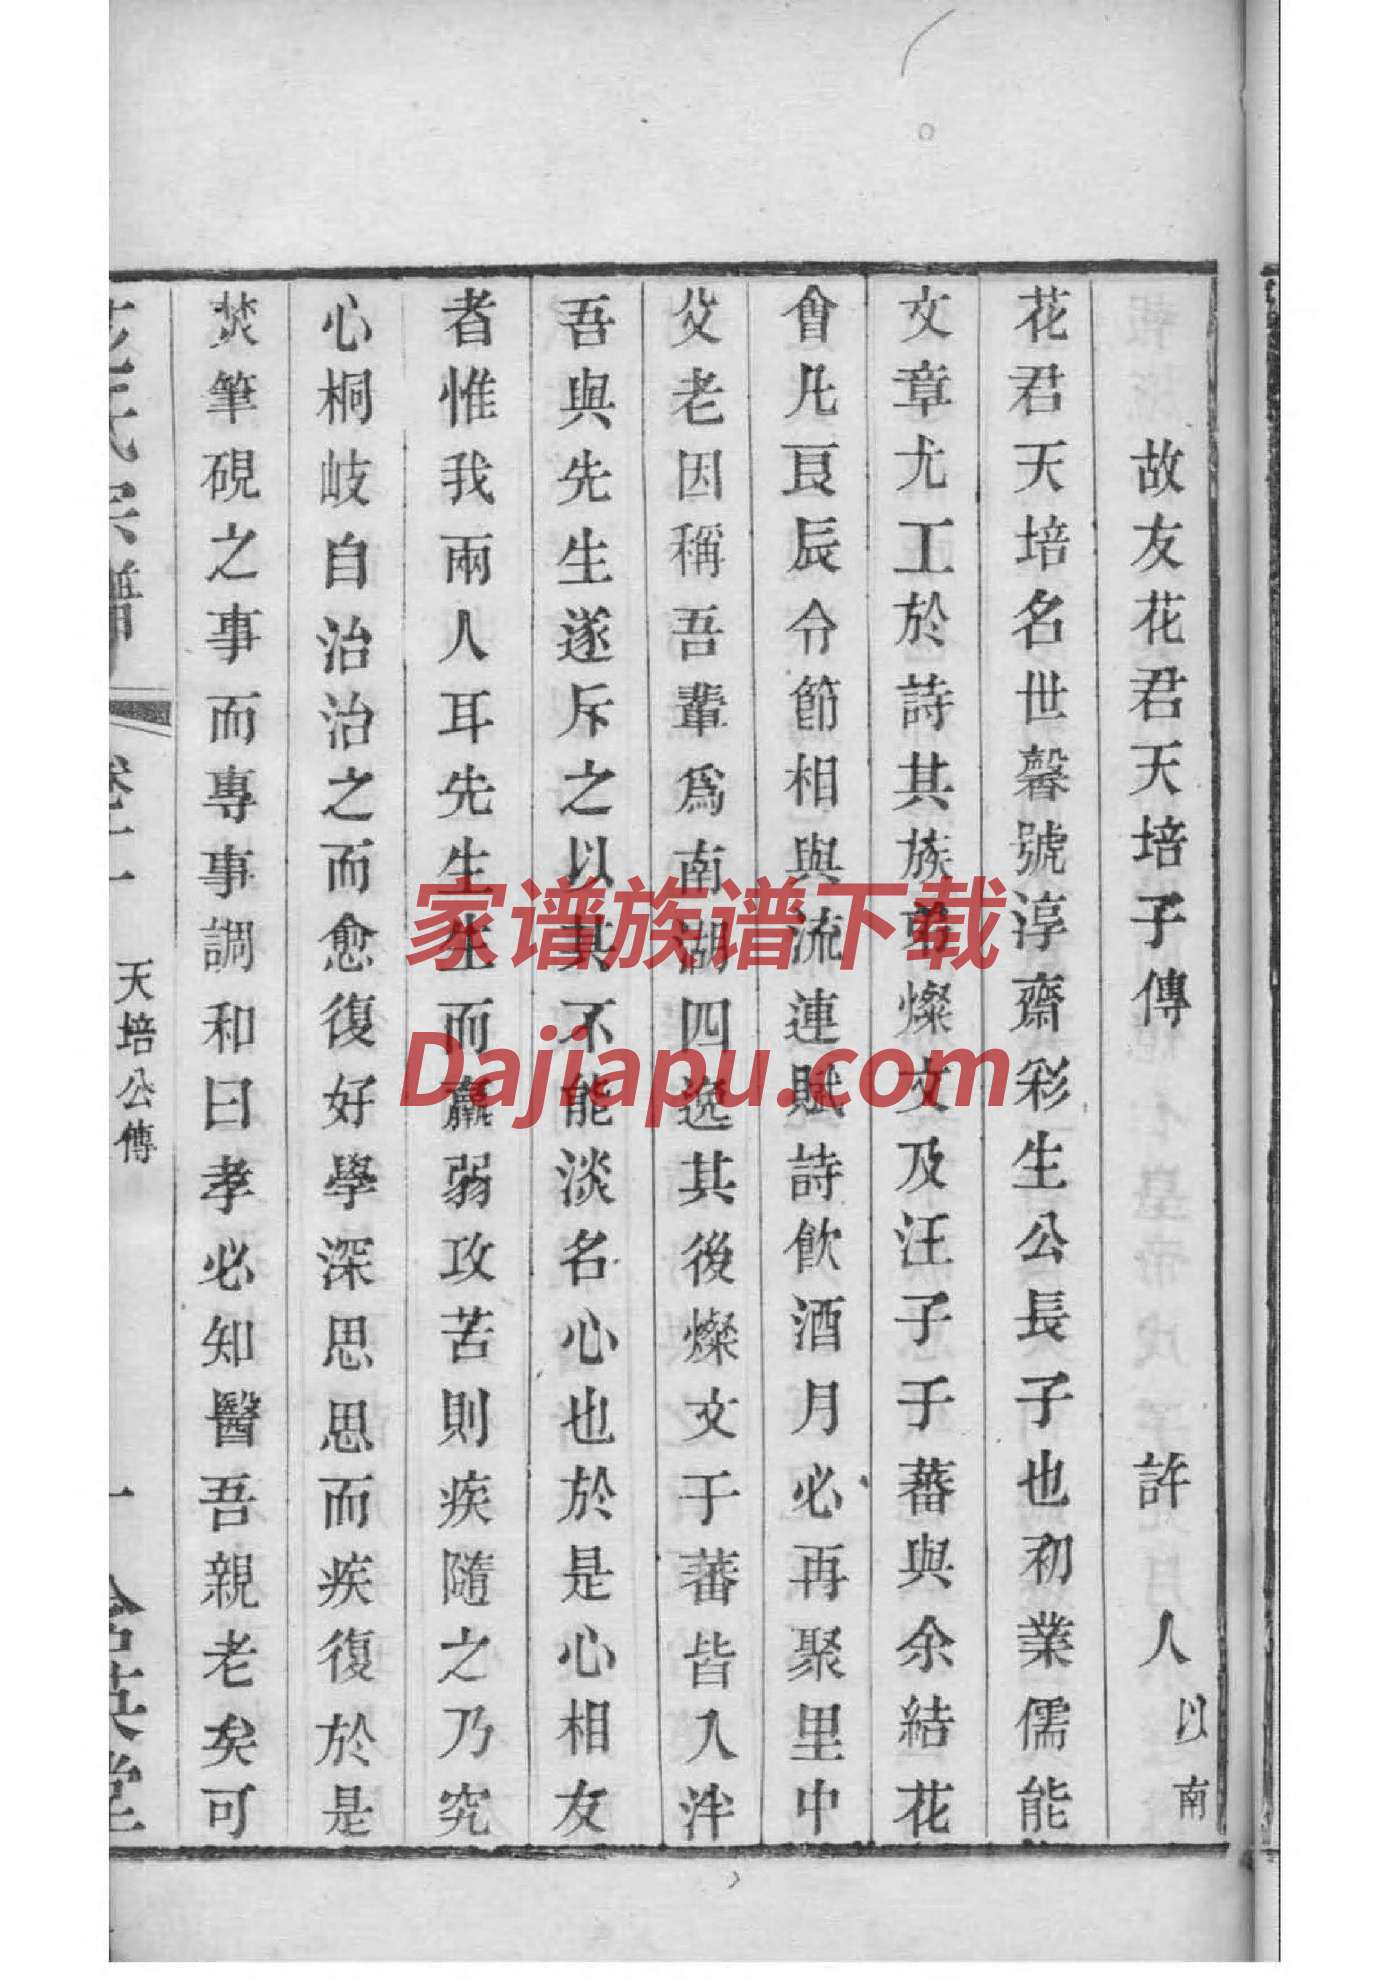 故友花君天培子傳 許人以南
花君天培名世馨號淳齋彩生公長子也初業儒能
文章尤工於詩其族弟燦文及汪子于蕃與余結花
會凡良辰令節相與流連賦詩飲酒月必再聚里中
父老因稱吾輩爲南湖四逸其後燦文于蕃皆入泮
吾與先生遂斥之以其不能淡名心也於是心相友
者惟我兩人耳先生生而羸弱攻苦則疾隨之乃究
心桐岐自治治之而愈復好學深思思而疾復於是
焚筆硯之事而專事調和曰孝必知醫吾親老矣可
花氏宗譜 卷十一 天培公傳 一 含英堂
家谱族谱下载
Dajiapu.com